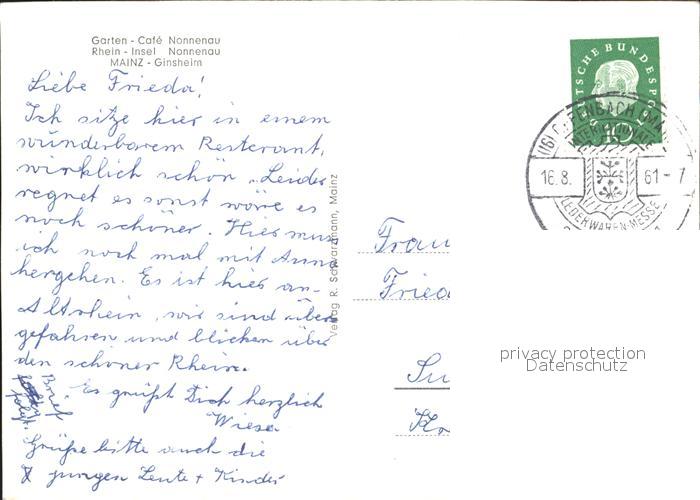 Garten - Café Nonnenau
Rhein - Insel Nonnenau
MAINZ - Ginsheim
Liebe Frieda!
Ich sitze hier in einem
wunderbarem Resterant,
wirklich schön. Leider
regnet es sonst wäre es
noch schöner. Hier muss
ich noch mal mit Anna
hergehen. Es ist hier am
Altrhein, wir sind über
gefahren und blicken über
den schöner Rhein.
Es grüßt Dich herzlich
Wiese
Brief
folgt.
Grüße bitte auch die
jungen Leute + Kinder
Verlag R. Schwarzmann, Mainz
Frau
Fried
Su
DEUTSCHE BUNDESPO
10
(16) OFFENBACH (MA
INTERNATIONALE
16.8. 61 - 7
LEDERWAREN-MESSE
privacy protection
Datenschutz